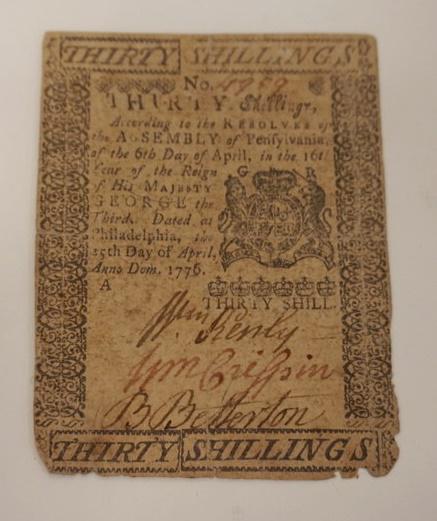 THIRTY SHILLINGS
No.
THIRTY Shillings,
According to the RESOLVES of
the ASSEMBLY of Pensylvania,
of the 6th Day of April, in the 16th
Year of the Reign
of His MAJESTY
GEORGE the
Third. Dated at
Philadelphia, the
25th Day of April,
Anno Dom. 1776.
G R
A
THIRTY SHILL.
Wm Crispin
B. Betterton
THIRTY SHILLINGS